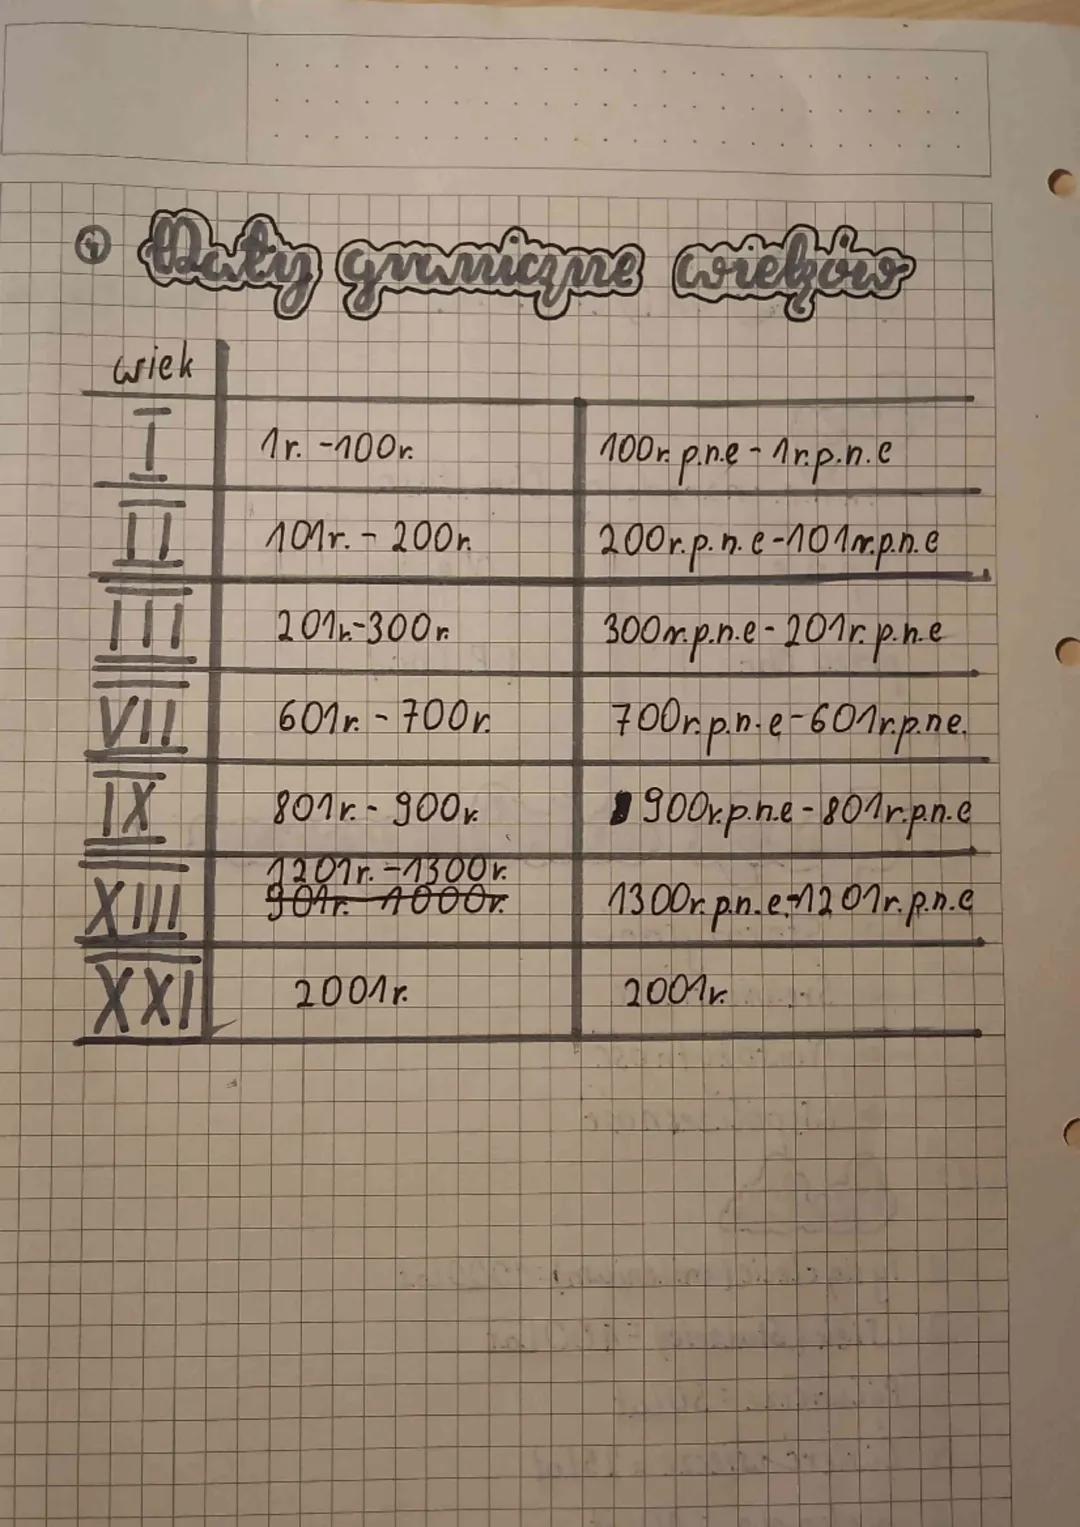 ④ Daty graniczne wieków
wiek
I 1r. -100r. 100r. p.n.e - 1r.p.n.e
II 101r. - 200r. 200r.p.n.e -101r.p.n.e
III 201r.-300r. 300r.p.n.e - 201r.p.n.e
VII 601r. - 700r. 700r.p.n.e - 601r.p.ne.
IX 801r. - 900r. 900r.p.n.e - 801r.p.n.e
XIII 1201r. -1300r. 1300r.p.n.e.-1201r.p.n.e
901r. 1000r.
XXI 2001r. 2001r.